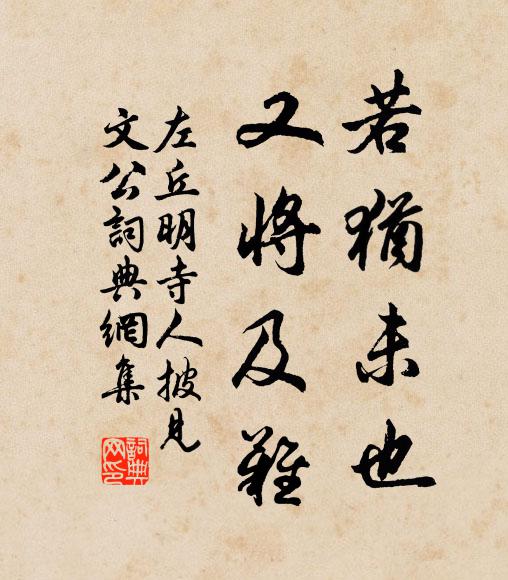 若猶未也
又將及難
左丘明寺人披見
文公詞典網集
詞典
网印